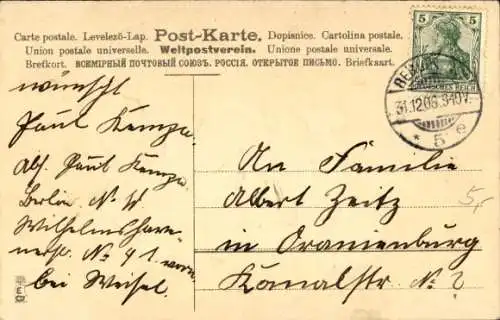 Carte postale. Levelező-Lap. Post-Karte. Dopisnice. Cartolina postale.
Union postale universelle. Weltpostverein. Unione postale universale.
Brefkort. ВСЕМІРНЫЙ ПОЧТОВЫЙ СОЮЗЪ. РОССІЯ. ОТКРЫТОЕ ПИСЬМО. Briefkaart.
5 5
DEUTSCHES REICH
BERLIN
31.12.06.9-10V.
* 5 e
wünscht
Paul Kempe.
Abs. Paul Kempe.
Berlin N. W
Wilhelmshave
nerst. No 41. vorn
bei Weisel.
An Familie
Albert Zeitz
in Oranienburg
Kanalstr. No 2
5,-